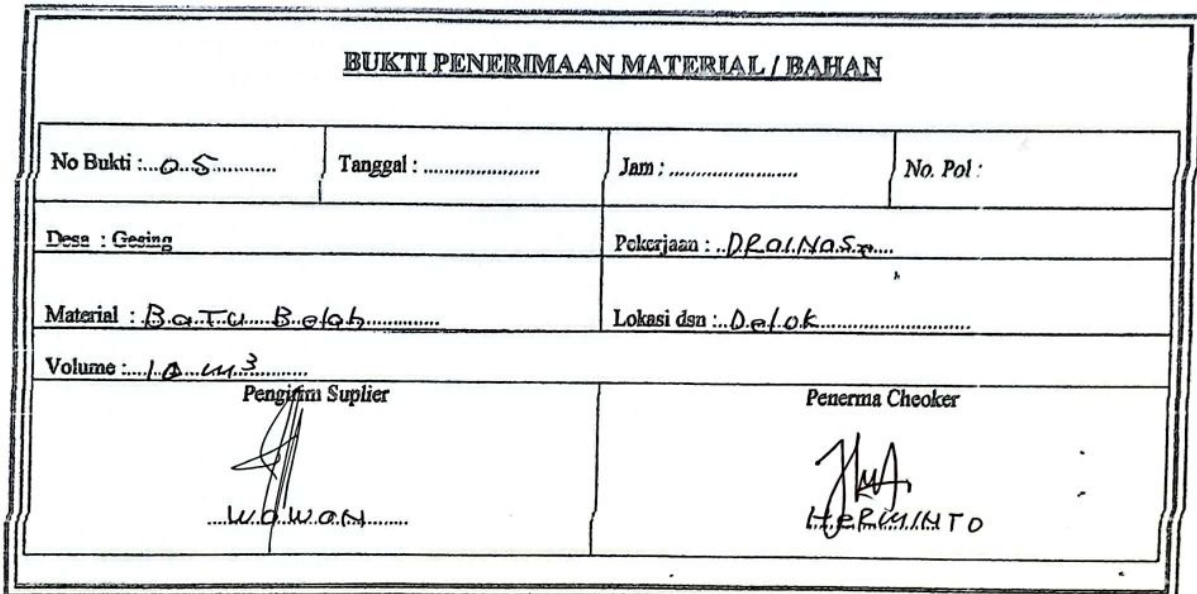 BUKTI PENERIMAAN MATERIAL / BAHAN
No Bukti : 05 Tanggal : ...................... Jam : ........................ No. Pol :
Desa : Gesing Pekerjaan : DRaiNase
Material : BaTu Belah Lokasi dsn : Delok
Volume : 10 m³
Pengirim Suplier Penerma Cheoker
WaWaN HeRMiNTO